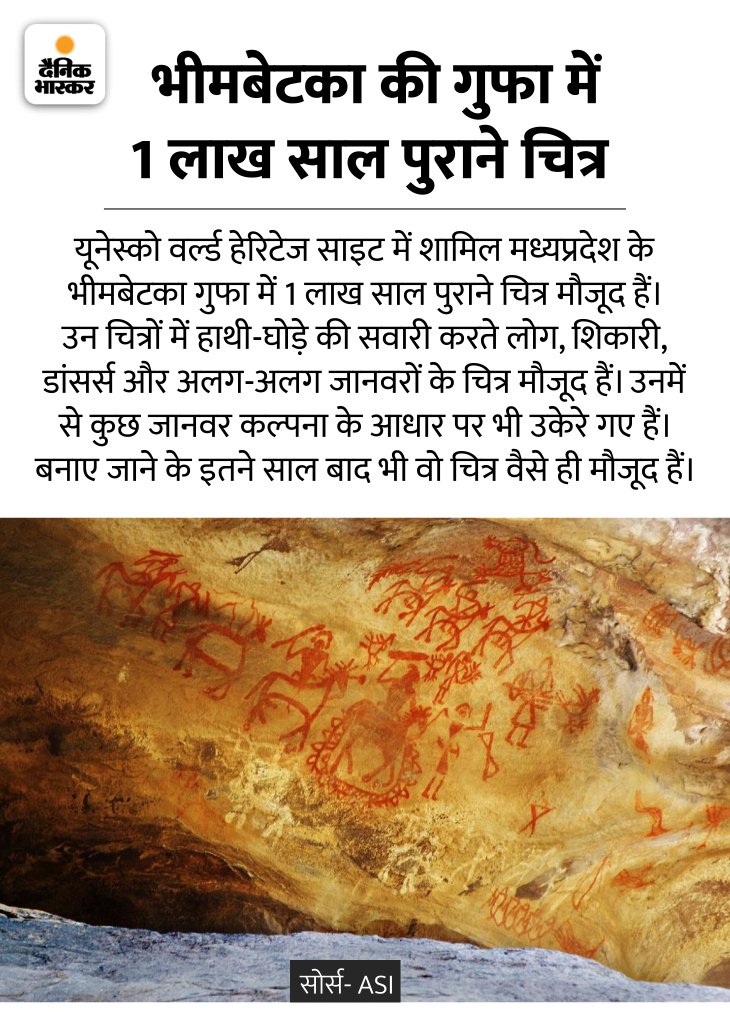 दैनिक
भास्कर
भीमबेटका की गुफा में
1 लाख साल पुराने चित्र
यूनेस्को वर्ल्ड हेरिटेज साइट में शामिल मध्यप्रदेश के
भीमबेटका गुफा में 1 लाख साल पुराने चित्र मौजूद हैं।
उन चित्रों में हाथी-घोड़े की सवारी करते लोग, शिकारी,
डांसर्स और अलग-अलग जानवरों के चित्र मौजूद हैं। उनमें
से कुछ जानवर कल्पना के आधार पर भी उकेरे गए हैं।
बनाए जाने के इतने साल बाद भी वो चित्र वैसे ही मौजूद हैं।
सोर्स- ASI